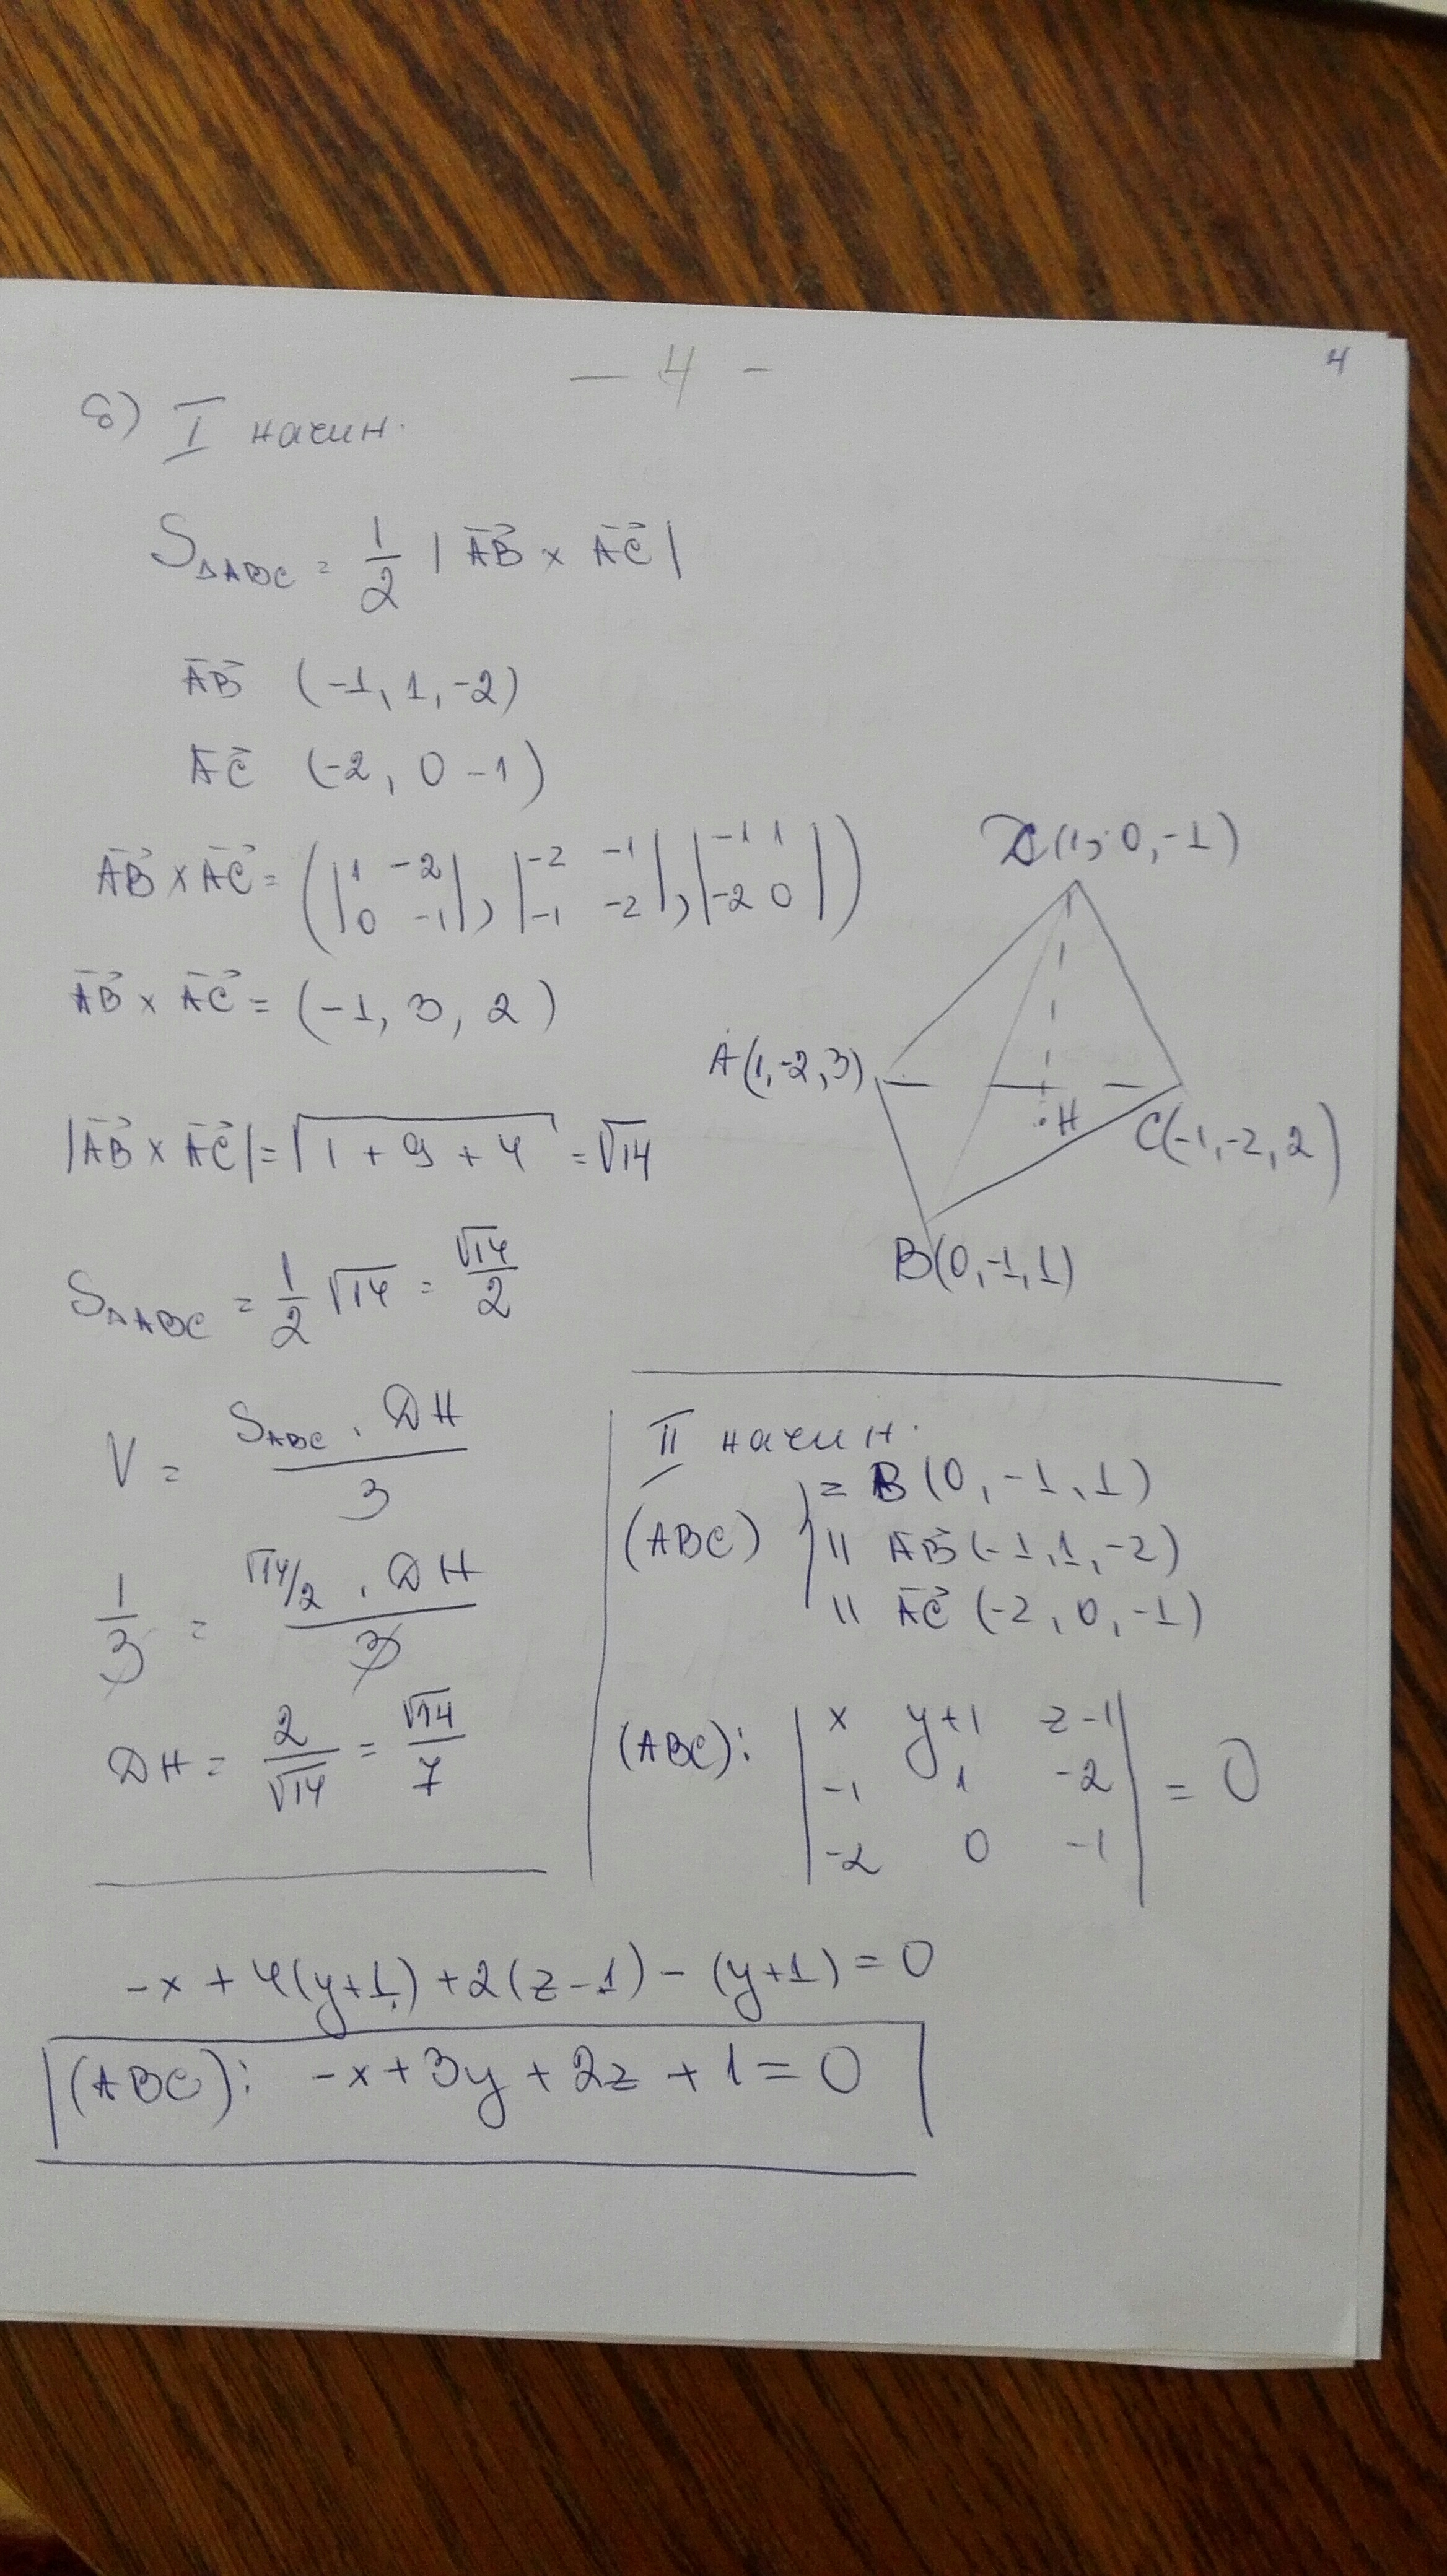 — 4 -
4
б) I начин.
S△ABC = 1/2 | AB⃗ × AC⃗ |
AB⃗ (-1, 1, -2)
AC⃗ (-2, 0 -1)
AB⃗ × AC⃗ = ( |1 -2; 0 -1|, |-2 -1; -1 -2|, |-1 1; -2 0| )
AB⃗ × AC⃗ = (-1, 3, 2)
|AB⃗ × AC⃗| = √(1 + 9 + 4) = √14
S△ABC = 1/2 √14 = √14/2
V = (S ABC . DH)/3
1/3 = (√14/2 . DH)/3
DH = 2/√14 = √14/7
D(1, 0, -1)
A(1, -2, 3)
H
C(-1, -2, 2)
B(0, -1, 1)
II начин.
(ABC) } = B (0, -1, 1)
|| AB⃗ (-1, 1, -2)
|| AC⃗ (-2, 0, -1)
(ABC): | x y+1 z-1 |
| -1 1 -2 | = 0
| -2 0 -1 |
-x + 4(y+1) + 2(z-1) - (y+1) = 0
(ABC): -x + 3y + 2z + 1 = 0